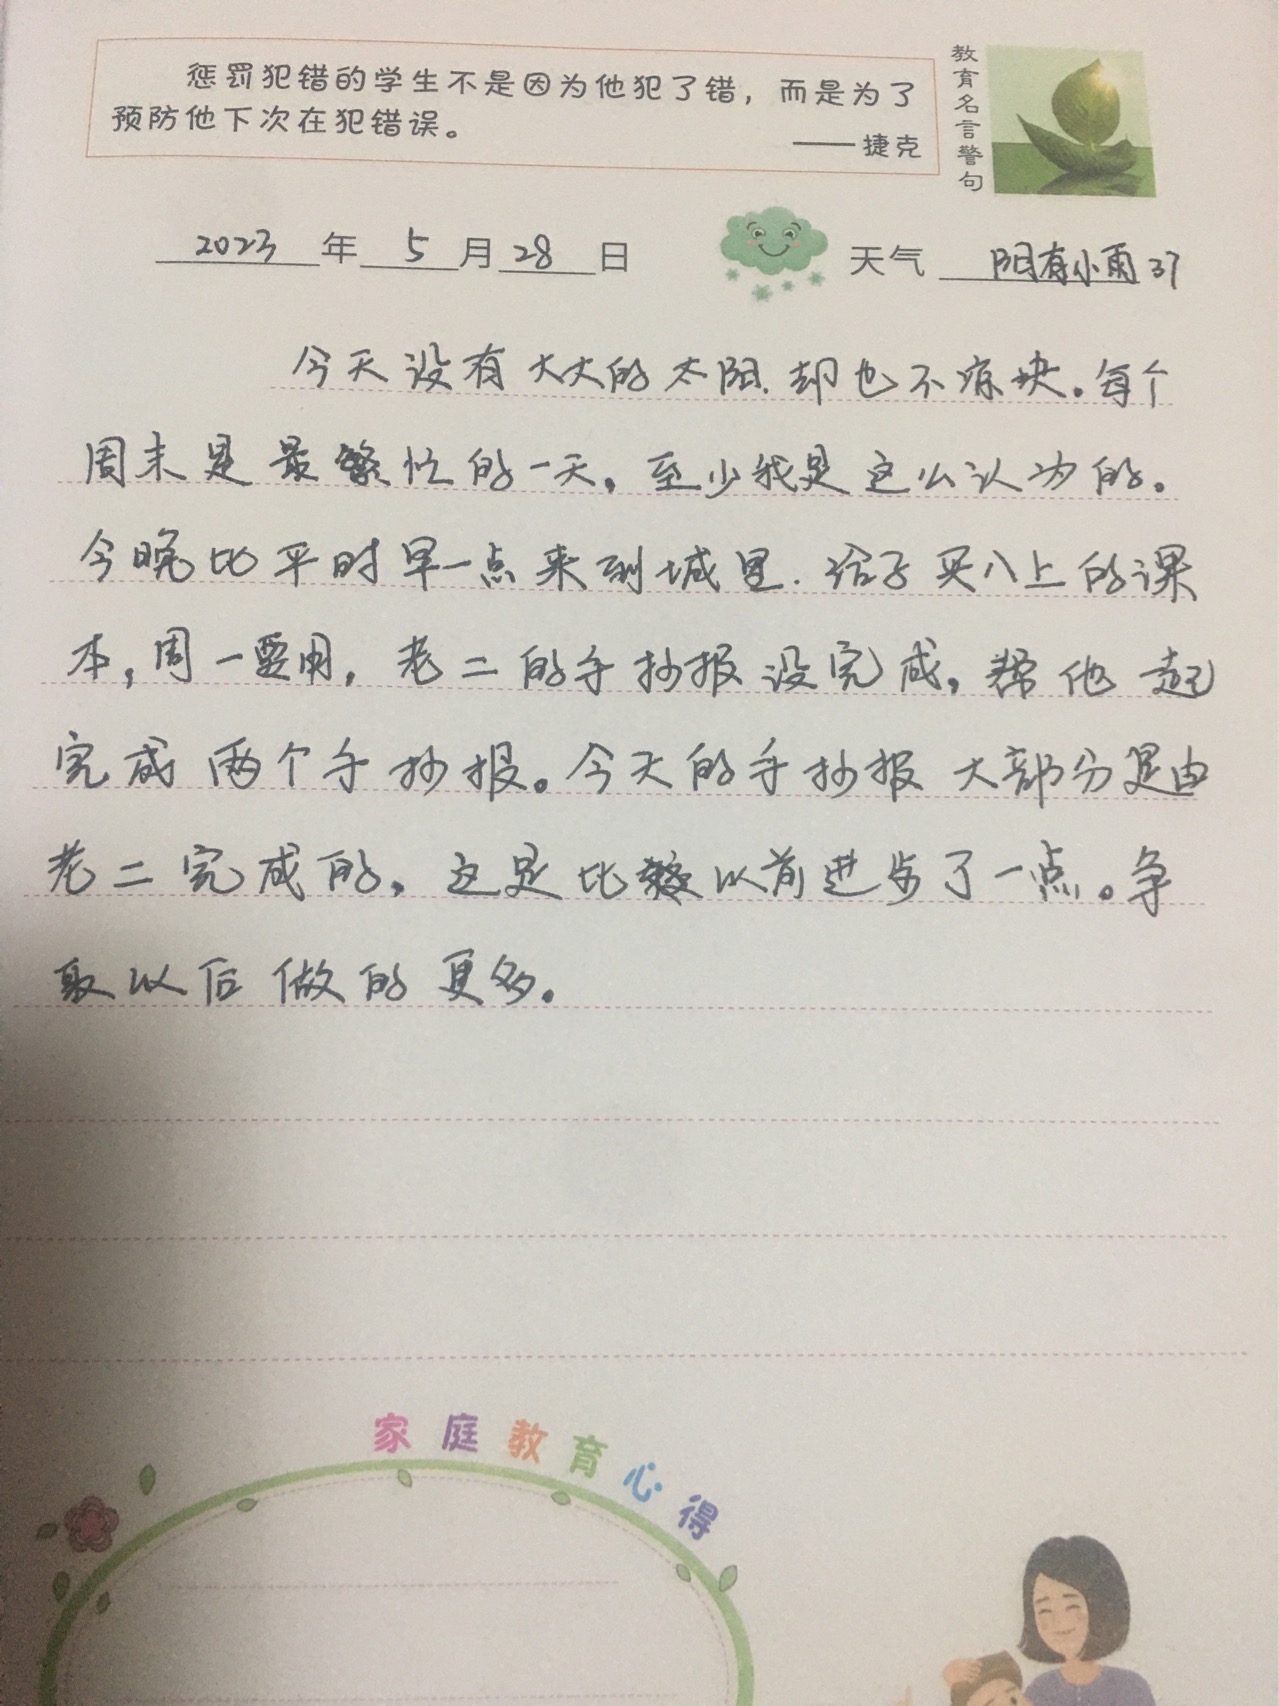 惩罚犯错的学生不是因为他犯了错，而是为了
预防他下次在犯错误。
——捷克
教育名言警句
2023年5月28日
天气 阳有小雨37
今天没有大大的太阳.却也不凉快。每个
周末是最繁忙的一天。至少我是这么认为的。
今晚比平时早一点来到城里.给子买八上的课
本，周一要用，老二的手抄报没完成。帮他起
完成两个手抄报。今天的手抄报大部分是由
老二完成的。这是比较以前进步了一点。争
取以后做的更多。
家庭教育心得